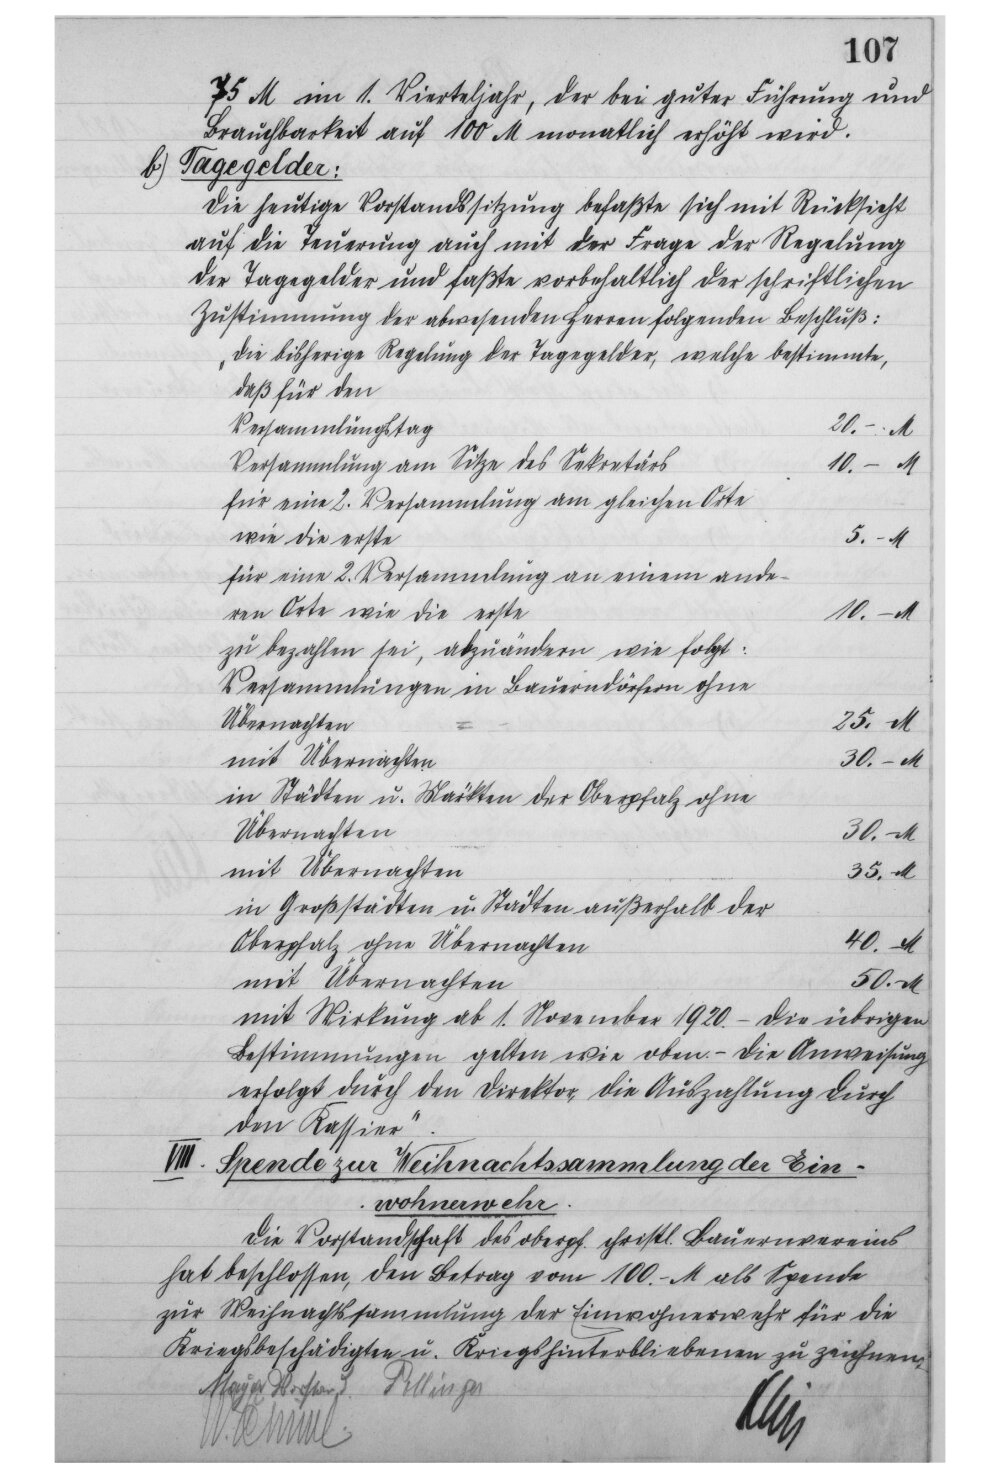 107
75 M im 1. Vierteljahr, der bei guter Führung und
Brauchbarkeit auf 100 M monatlich erhöht wird.
b) Tagegelder:
Die heutige Vorstandssitzung befaßte sich mit Rücksicht
auf die Teuerung auch mit der Frage der Regelung
der Tagegelder und faßte vorbehaltlich der schriftlichen
Zustimmung der abwesenden Herren folgenden Beschluß:
„Die bisherige Regelung der Tagegelder, welche bestimmte,
daß für den
Versammlungstag 20.- M
Versammlung am Sitze des Sekretärs 10.- M
für eine 2. Versammlung am gleichen Orte
wie die erste 5.- M
für eine 2. Versammlung an einem ande-
ren Orte wie die erste 10.- M
zu bezahlen sei, abzuändern wie folgt:
Versammlungen in Bauerndörfern ohne
Übernachten 25.- M
mit Übernachten 30.- M
in Städten u. Märkten der Oberpfalz ohne
Übernachten 30.- M
mit Übernachten 35.- M
in Großstädten u. Städten außerhalb der
Oberpfalz ohne Übernachten 40.- M
mit Übernachten 50.- M
mit Wirkung ab 1. November 1920. – Die übrigen
Bestimmungen gelten wie oben. – Die Anweisung
erfolgt durch den Direktor, die Auszahlung durch
den Kassier".
VIII. Spende zur Weihnachtssammlung der Ein-
wohnerwehr.
Die Vorstandschaft des oberpf. christl. Bauernvereins
hat beschlossen, den Betrag vom 100.- M als Spende
zur Weihnachtssammlung der Einwohnerwehr für die
Kriegsbeschädigten u. Kriegshinterbliebenen zu zeichnen.